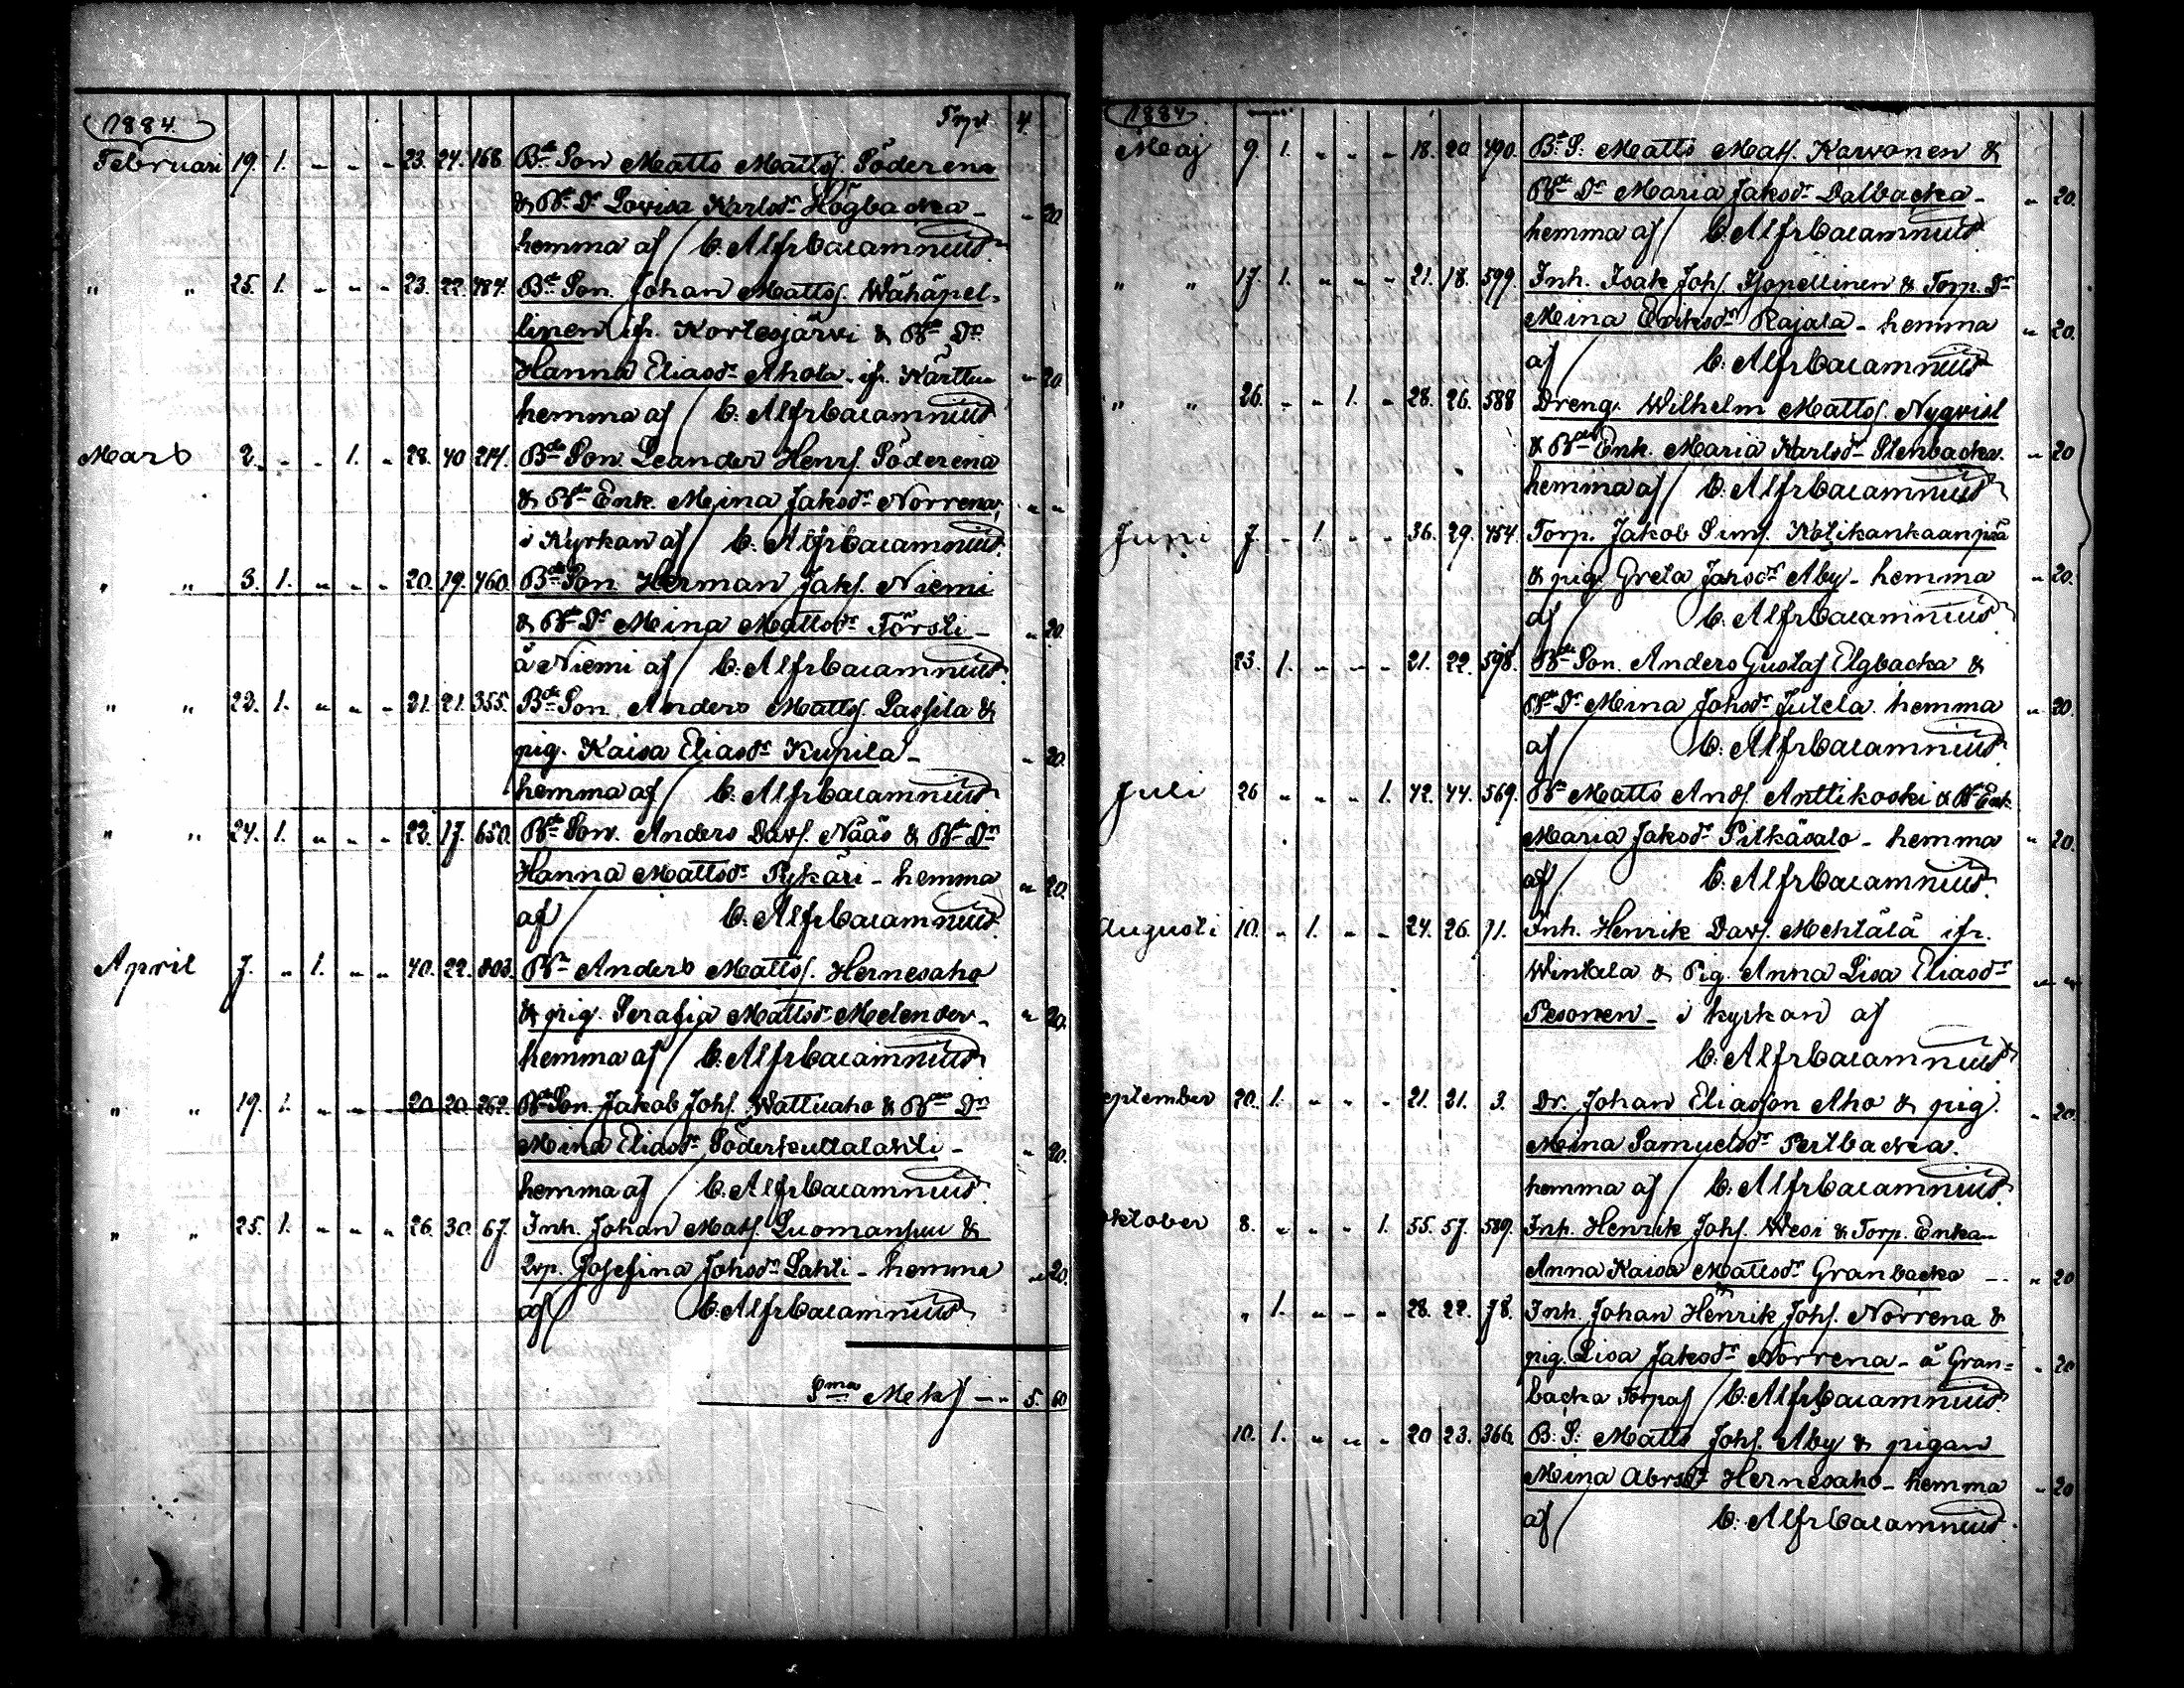 1884. Trp. 4.
Februari 19. 1. " " " 23. 24. 168. Bde Son Matts Matts. Söderena
& Bde Dr Lovisa Karlsdr Högbacka - " 20
hemma af / C. Alfr Caiamnius.
" " 25. 1. " " " 23. 22. 484. Bde Son. Johan Matts. Wähäpel-
linen ifr. Kortesjärvi & Bde Dr
Hanna Eliasdr Ahola - ifr. Kärttu " 20
hemma af / C. Alfr Caiamnius
Mars 2. " " 1. " 28. 40. 214. Bde Son Leander Henrs. Söderena
& Bde Enk. Meina Jaksdr Norrena, " "
i Kyrkan af / C. Alfr Caiamnius.
" " 3. 1. " " " 20. 19. 460. Bde Son Herman Jaks. Niemi
& Bde Dr Meina Mattsdr Försti - " 20.
å Niemi af / C. Alfr Caiamnius.
" " 23. 1. " " " 21. 21. 355. Bde Son. Anders Matts. Lassila &
pig. Kaisa Eliasdr Kupila - " 20.
hemma af / C. Alfr Caiamnius
" " 24. 1. " " " 22. 17. 650. Bde Son. Anders Davs. Nääs & Bde Dr
Hanna Mattsdr Pykäri - hemma " 20.
af / C. Alfr Caiamnius.
April 7. " 1. " " 40. 22. 803. Bdn Anders Matts. Hernesaho
& pig. Serafia Mattsdr Melender - " 20.
hemma af / C. Alfr Caiamnius
" " 19. 1. " " " 20. 20. 262. Bde Son. Jakob Johs. Wattuaho & Bde Dr
Meina Eliasdr Söderkultalahti - " 20.
hemma af / C. Alfr Caiamnius.
" " 25. 1. " " " 26. 30. 67. Inh. Johan Mats. Luomansuu &
Josefina Johsdr Lahti - hemma " 20.
af / C. Alfr Caiamnius
Sma Mekf - " 5. 60
1884.
Maj 9. 1. " " " 18. 20. 490. Bde S: Matts Mats. Karvonen &
Bde Dr Maria Jaksdr Dalbacka - " 20.
hemma af / C. Alfr Caiamnius
" " 17. 1. " " " 21. 18. 599. Inh. Isak Johs. Isopellinen & Torp. Dr
Meina Eriksdr Rajala - hemma " 20.
af / C. Alfr Caiamnius
" " 26. " " 1. " 28. 26. 588 Dreng. Wilhelm Matts. Nyqvist
& Bde Enk. Maria Karlsdr Stenbacka. " 20
hemma af / C. Alfr Caiamnius
Juni 7. " 1. " " 36. 29. 454. Torp. Jakob Sims. Kotikankaanpää
& pig. Greta Jaksdr Aby - hemma " 20.
af / C. Alfr Caiamnius
23. 1. " " " 21. 22. 598. Bde Son. Anders Gustaf Elgbacka &
Bde Dr Meina Johsdr Jutela hemma " 20.
af / C. Alfr Caiamnius
Juli 26 " " " 1. 42. 44. 569. Bdn Matts Ands. Anttikoski & Bde Enk.
Maria Jaksdr Pitkäsalo - hemma " 20.
af / C. Alfr Caiamnius
Augusti 10. " 1. " " 24. 26. 71. Inh. Henrik Davs. Mehtälä ifr.
Wintala & Pig. Anna Lisa Eliasdr " "
Pesonen - i kyrkan af
C. Alfr Caiamnius
eptember 20. 1. " " " 21. 21. 3. Dr. Johan Eliasson Aho & pig. " 20.
Meina Samuelsdr Pertbacka.
hemma af / C. Alfr Caiamnius
oktober 8. " " " 1. 55. 57. 589. Inh. Henrik Johs. Wesi & Torp. Enkan
Anna Kaisa Mattsdr Granbacka - " 20
" 1. " " " 28. 22. 78. Inh. Johan Henrik Johs. Norrena &
pig. Lisa Jaksdr Norrena - å Gran= " 20
backa Torp af / C. Alfr Caiamnius
10. 1. " " " 20 23. 366. B: S: Matts Johs. Aby & pigan
Meina Abrsdr Hernesaho - hemma " 20
af / C. Alfr Caiamnius.